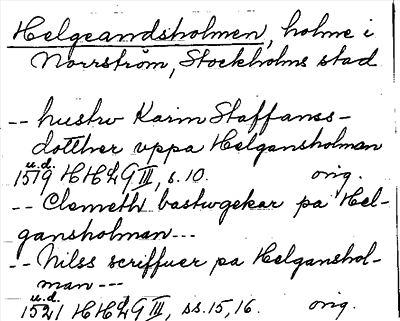 Helgeandsholmen, holme i
Norrström, Stockholms stad
-- hustrv Karin Staffanss-
dotther vppa Helgansholman
u.d.
1519 HH2GIII, s. 10. orig.
-- Clemeth bastwgekar pa Hel-
gansholman ---
-- Nilss scriffuer pa Helganshol-
man ---
u.d.
1521 HH2GIII, ss. 15, 16. orig.